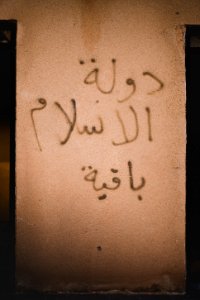 دولة
الاسلام
باقية